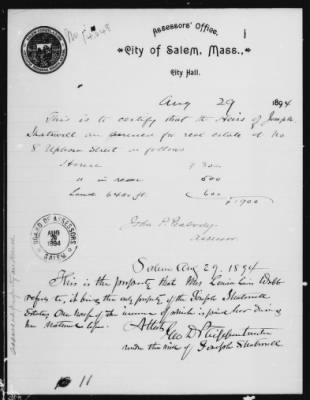 Assessors' Office,
City of Salem, Mass.,
City Hall.
Aug 29 1894
This is to certify that the Heirs of Joseph
are assessed for real estate at No
8 Upham Street as follows
House $ 800
" in rear 500
Land 6400 ft. 600
$ 1900
John P. Peabody
Assessor
BOARD OF ASSESSORS
AUG
1894
SALEM
Salem Aug 29. 1894
This is the property that Mrs
refers to, it being the only property of the Joseph
Estate, One half of the income of which is paid her during
her natural life.
Attest
Geo D
under the will of Joseph
11